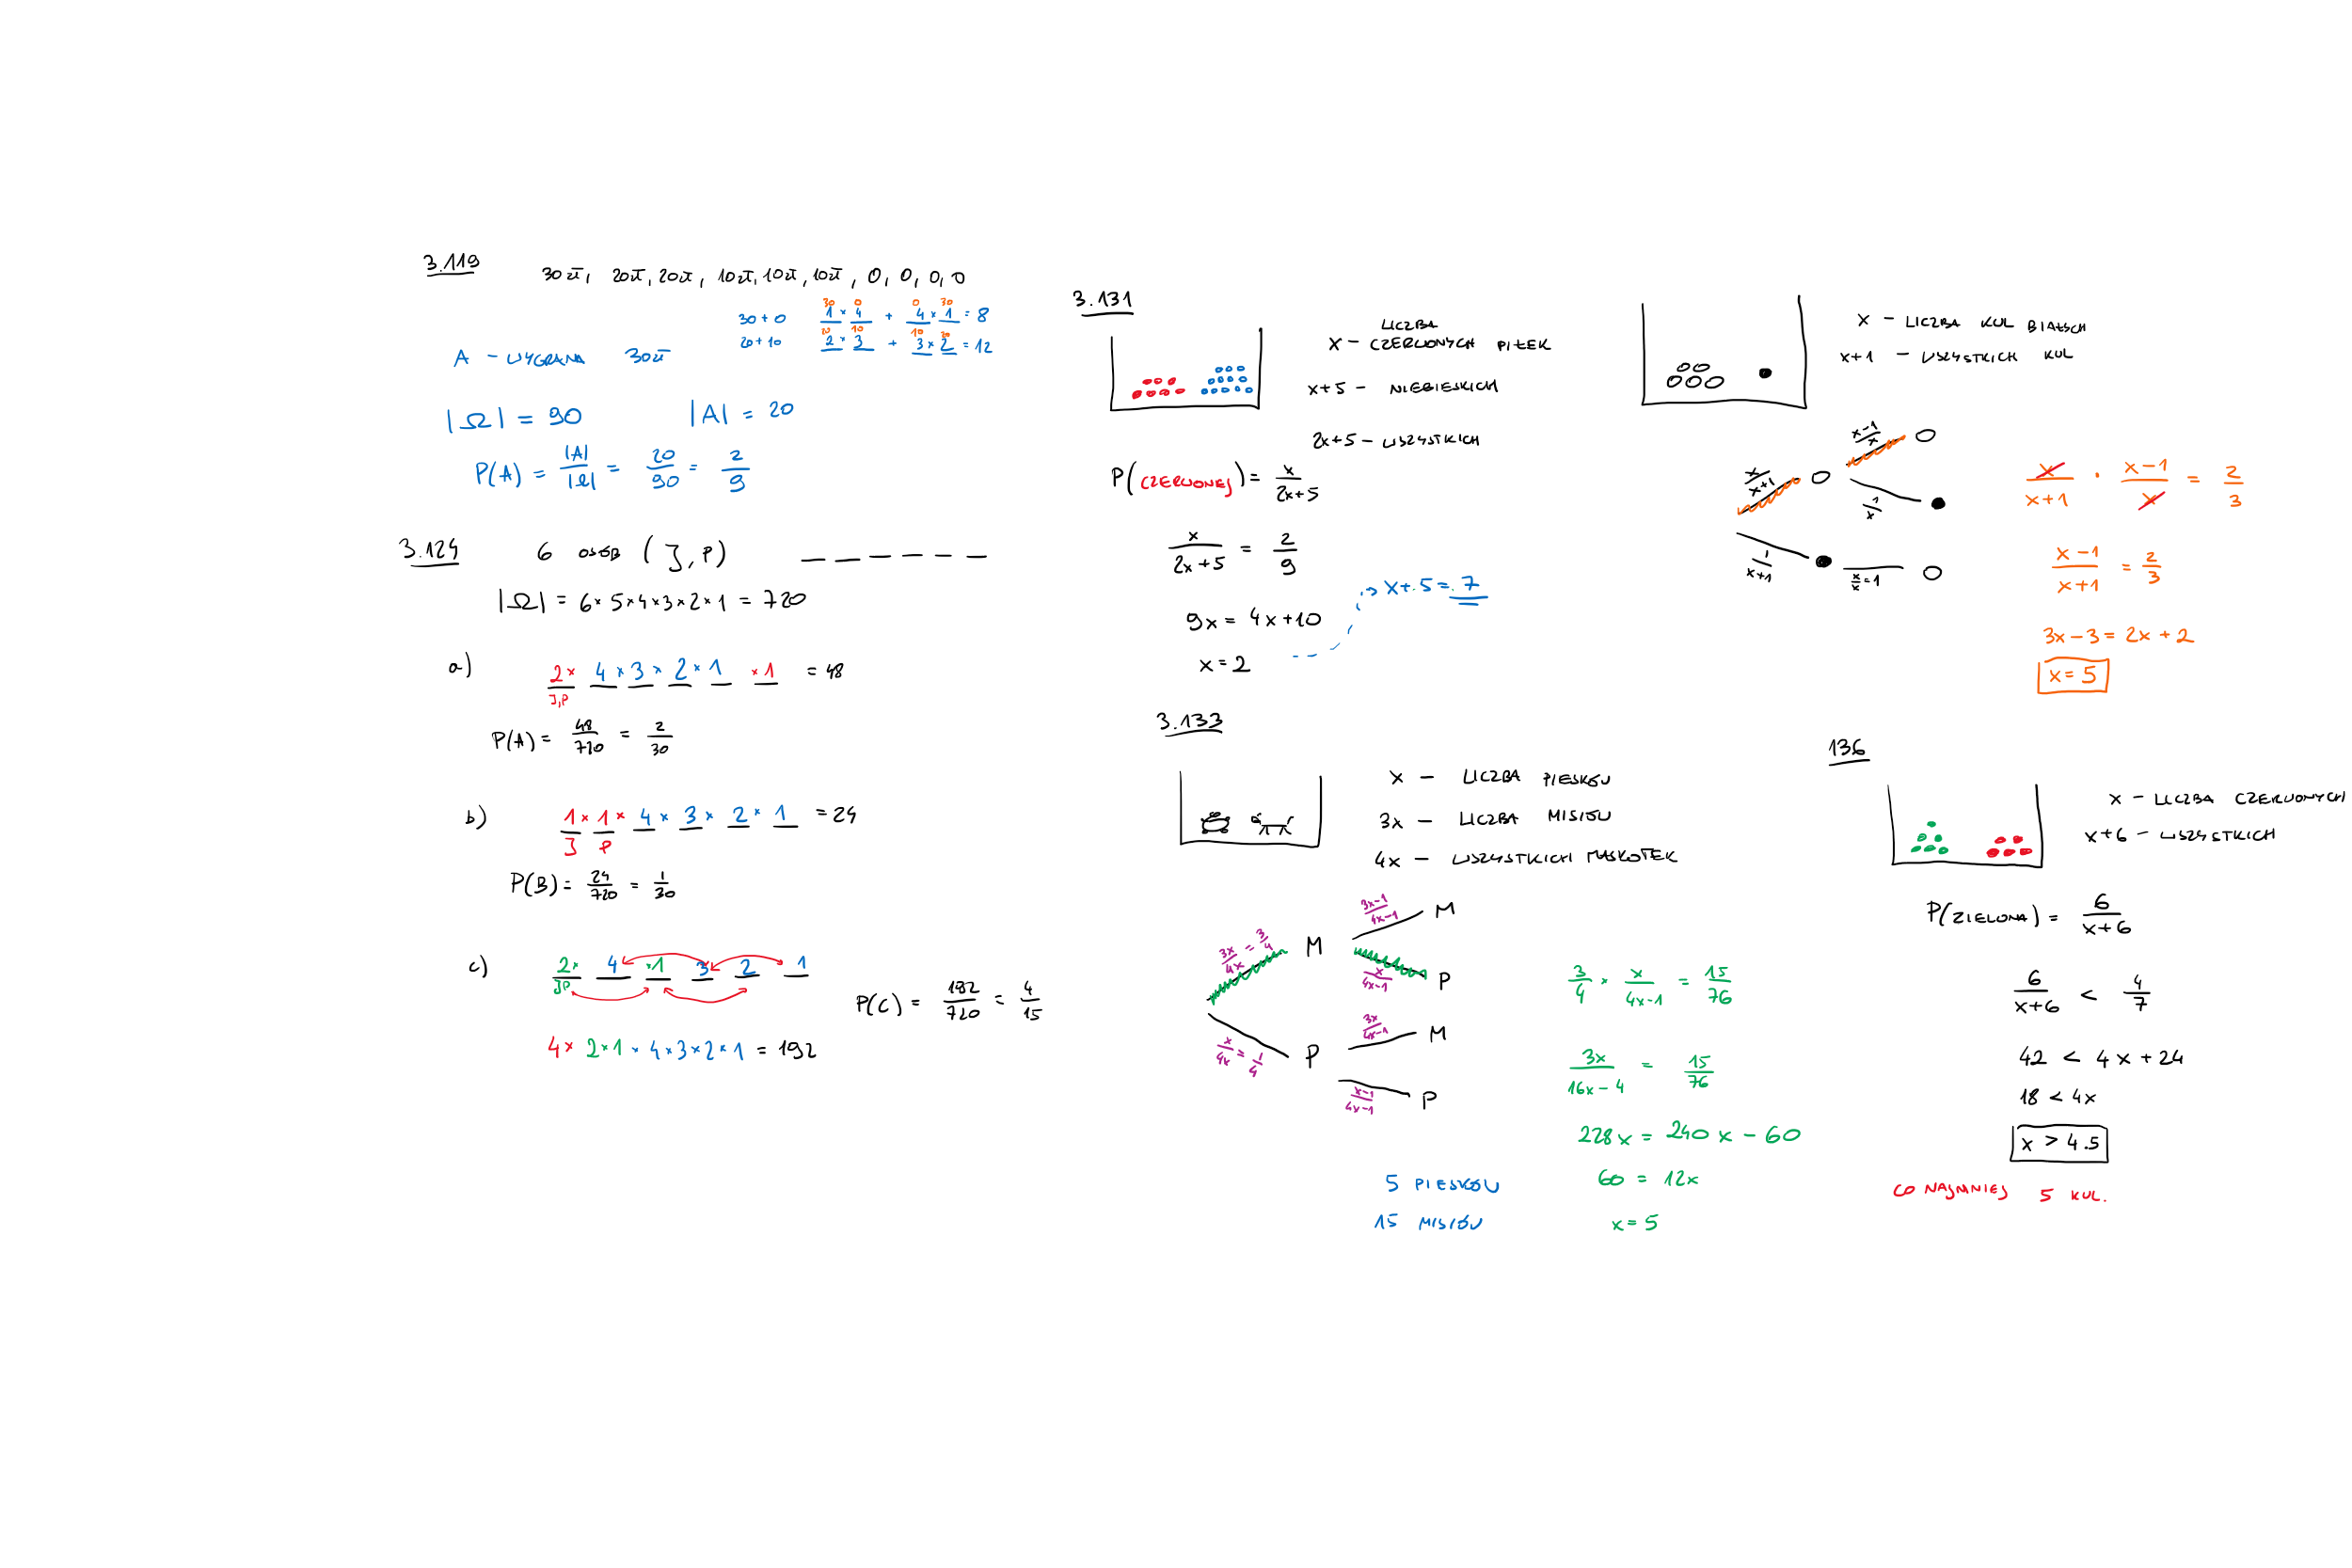 3.119
30 zł, 20 zł, 20 zł, 10 zł, 10 zł, 10 zł, 0, 0, 0, 0
30 0 0 30
30 + 0 1 × 4 + 4 × 1 = 8
20 10 10 20
20 + 10 2 × 3 + 3 × 2 = 12
A - WYGRANA 30 zł
|Ω| = 90 |A| = 20
P(A) = |A|/|Ω| = 20/90 = 2/9
3.124 6 OSÓB (J, P) _ _ _ _ _ _
|Ω| = 6 × 5 × 4 × 3 × 2 × 1 = 720
a) 2 × 4 × 3 × 2 × 1 × 1 = 48
J,P
P(A) = 48/720 = 2/30
b) 1 × 1 × 4 × 3 × 2 × 1 = 24
J P
P(B) = 24/720 = 1/30
c) 2 × 4 × 1 3 2 1
JP
P(C) = 192/720 = 4/15
4 × 2 × 1 × 4 × 3 × 2 × 1 = 192
3.131
LICZBA
x - CZERWONYCH PIŁEK
x+5 - NIEBIESKICH
2x+5 - WSZYSTKICH
P(CZERWONEJ) = x/2x+5
x/2x+5 = 2/9
9x = 4x+10
x = 2
x+5 = 7
x - LICZBA KUL BIAŁYCH
x+1 - WSZYSTKICH KUL
x/x+1
x-1/x
1/x
1/x+1
x/x = 1
x/x+1 · x-1/x = 2/3
x-1/x+1 = 2/3
3x-3 = 2x+2
x = 5
3.133
x - LICZBA PIESKÓW
3x - LICZBA MISIÓW
4x - WSZYSTKICH MASKOTEK
3x/4x = 3/4 M
3x-1/4x-1 M
x/4x-1 P
x/4x = 1/4 P
3x/4x-1 M
x-1/4x-1 P
3/4 × x/4x-1 = 15/76
3x/16x-4 = 15/76
228x = 240x - 60
60 = 12x
x = 5
5 PIESKÓW
15 MISIÓW
136
x - LICZBA CZERWONYCH
x+6 - WSZYSTKICH
P(ZIELONA) = 6/x+6
6/x+6 < 4/7
42 < 4x+24
18 < 4x
x > 4.5
CO NAJMNIEJ 5 KUL.